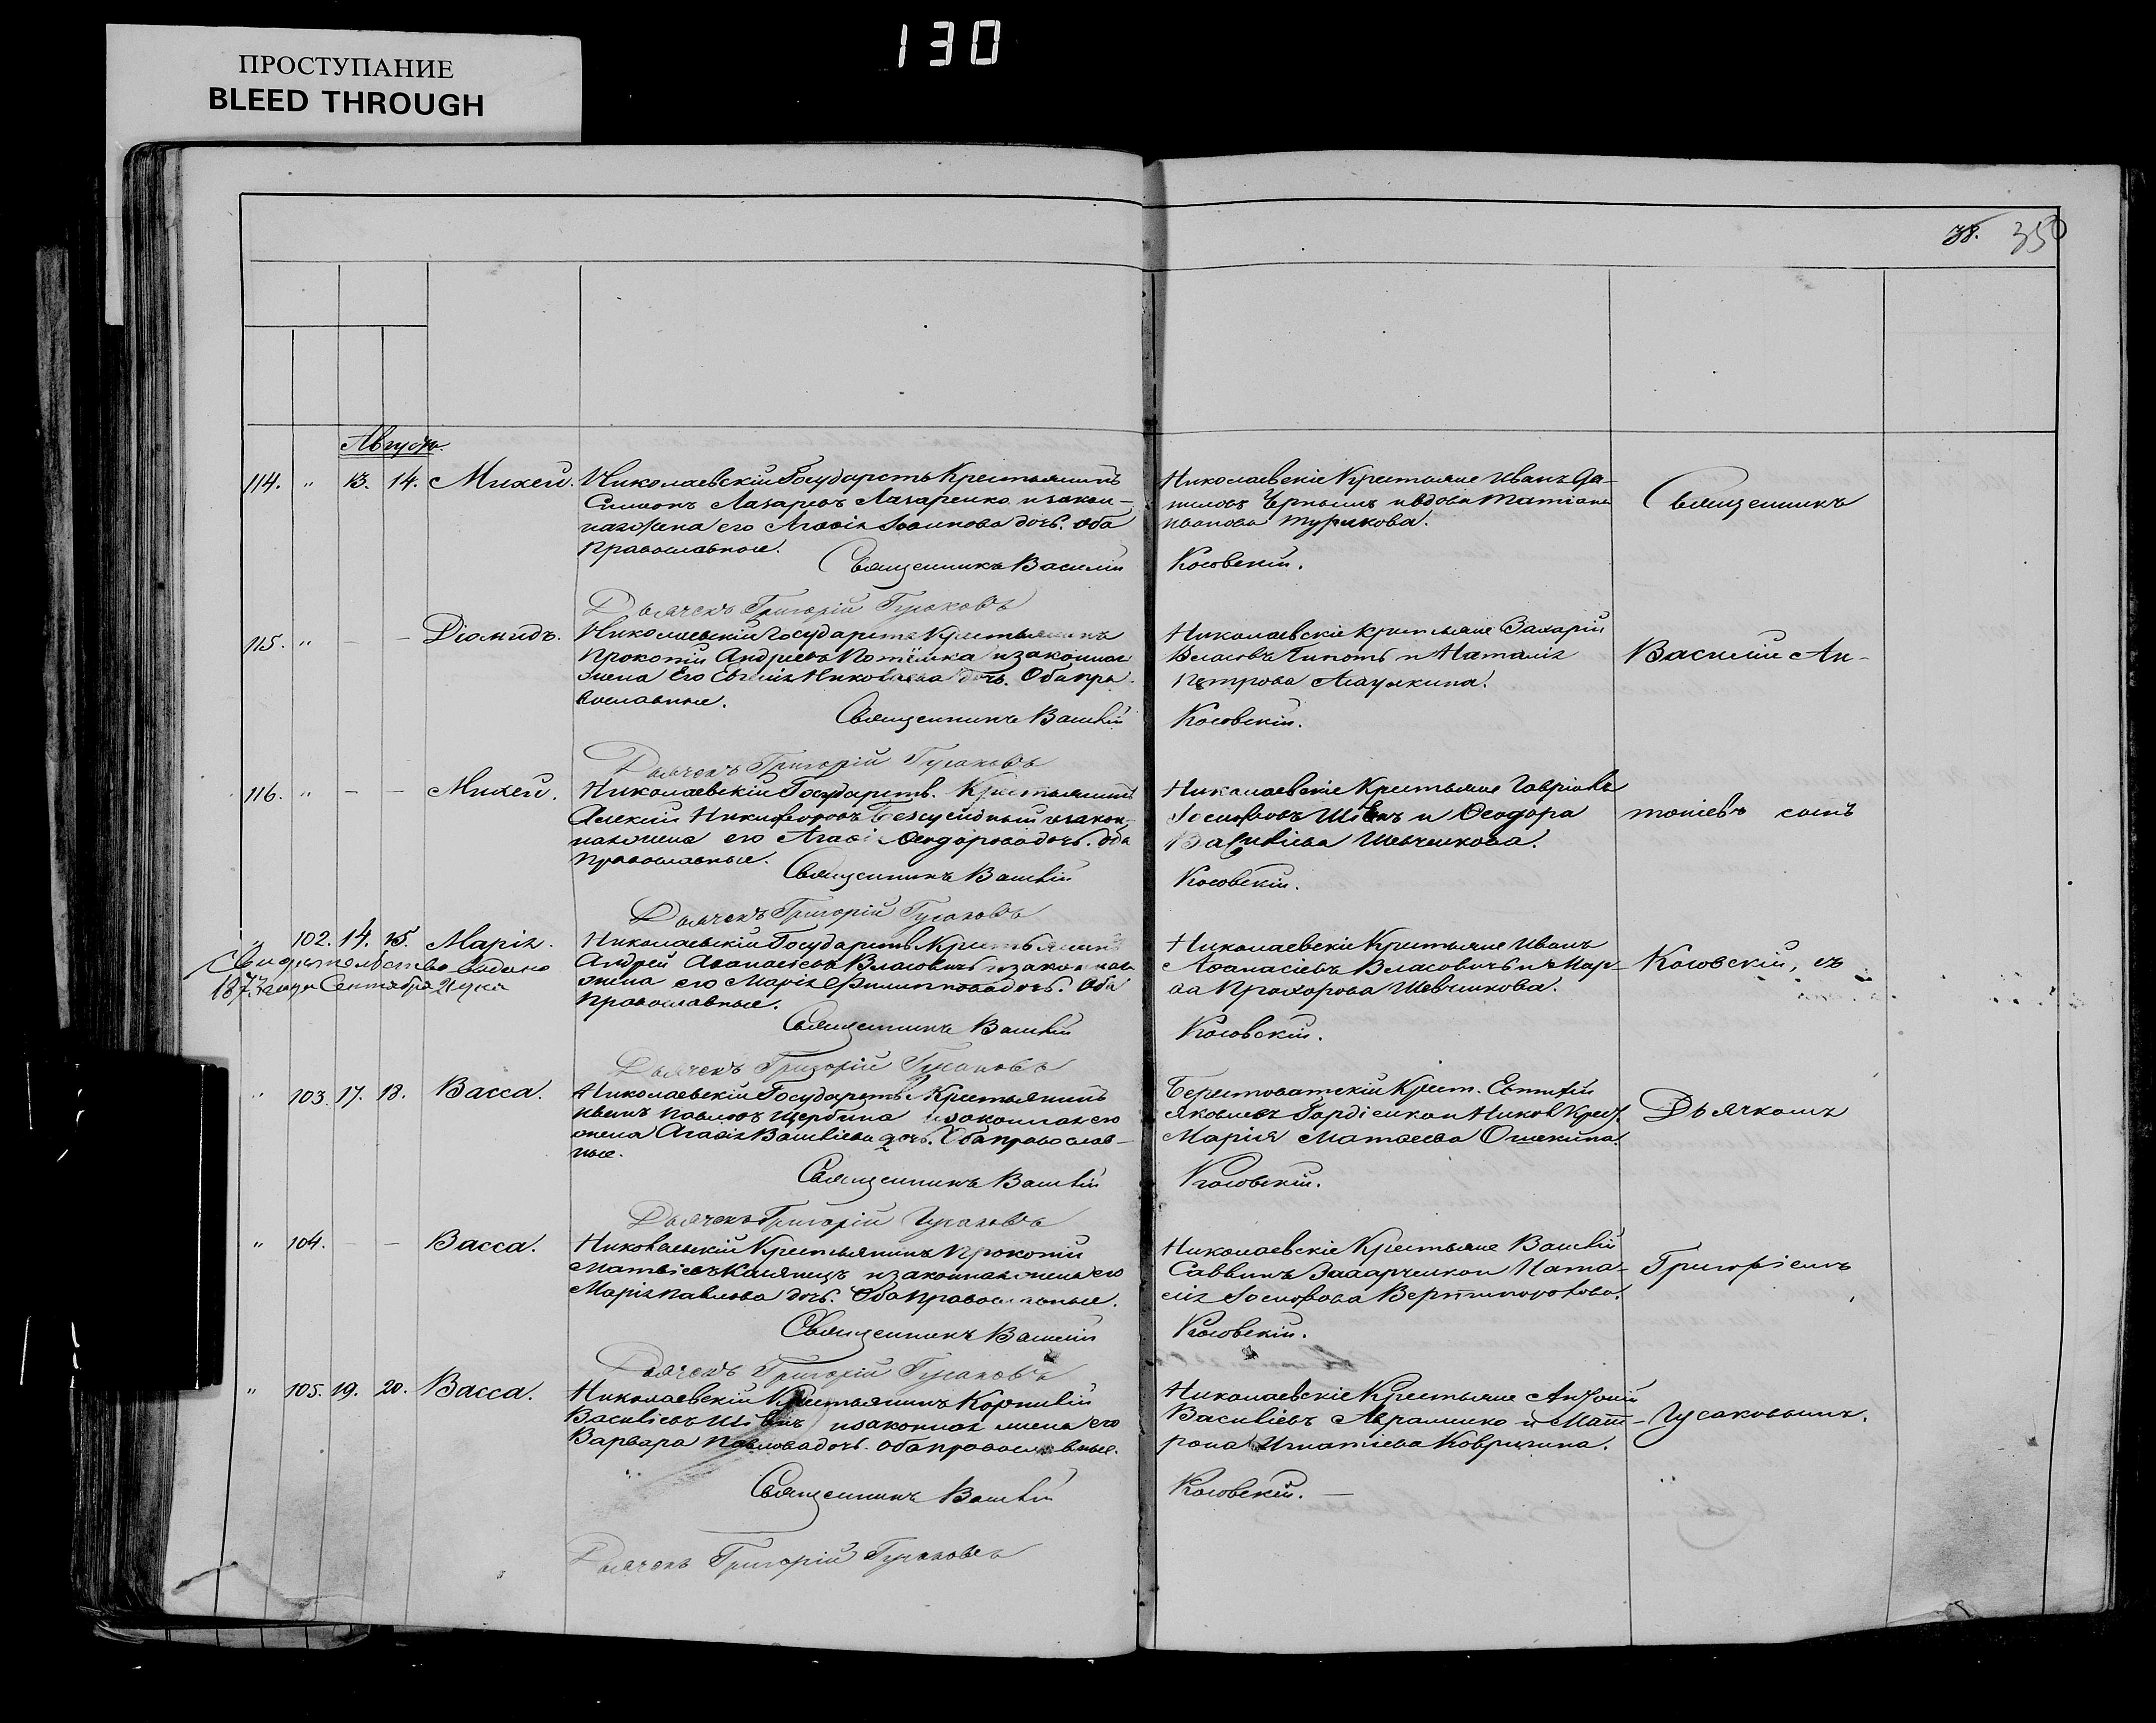 130
ПРОСТУПАНИЕ
BLEED THROUGH
38. 350
Августъ.
114. " 13. 14. Михей. Николаевскій Государств Крестьянинъ
Симеонъ Лазаревъ Лазаренко и закон-
ная жена его Агафія дочь. Оба
православные.
Священникъ Василій Косовскій.
Дьячекъ Григорій Гусаковъ
Николаевскіе Крестьяне Иванъ Да-
ниловъ Черныш и вдова Татіана
Иванова Турикова.
Священникъ
115. " — — Діомидъ. Николаевскій Государств Крестьянинъ
Прокопій Андреевъ Потёмка и законная
жена его Евгенія Николаева дочь. Оба пра-
вославные.
Священникъ Василій Косовскій.
Дьячекъ Григорій Гусаковъ
Николаевскіе Крестьяне Захарій
Власовъ и Наталія
Петрова
Василій Ан-
116. " — — Михей. Николаевскій Государств. Крестьянинъ
Алексій Никифоровъ и закон-
ная жена его Агафія Феодорова дочь. Оба
православные.
Священникъ Василій Косовскій.
Дьячекъ Григорій Гусаковъ
Николаевскіе Крестьяне Гавріилъ
Іосифовъ Швецъ и Феодора
Василіева Шевченкова.
тоніевъ сынъ
" 102. 14. 15. Марія. Николаевскій Государств Крестьянинъ
Свидетельство выдано
187 года Сентября 21 дня
Андрей Афанасіевъ Власовичъ и законная
жена его Марія Филиппова дочь. Оба
православные.
Священникъ Василій Косовскій.
Дьячекъ Григорій Гусаковъ
Николаевскіе Крестьяне Иванъ
Афанасіевъ Власовичъ и Мар-
фа Прохорова Шевченкова.
Косовскій, съ
" 103. 17. 18. Васса. Николаевскій Государств Крестьянинъ
Иванъ Павловъ Щербина и законная его
жена Агафія Василіева дочь. Оба православ-
ные.
Священникъ Василій Косовскій.
Дьячекъ Григорій Гусаковъ
Берестоватскій Крест. Евтихій
Яковлевъ Гордіенко и Никол Крест.
Марія Матвеева
Дьячкомъ
" 104. — — Васса. Николаевскій Крестьянинъ Прокопій
Матвіевъ и законная жена его
Марія Павлова дочь. Оба православные.
Священникъ Василій Косовскій.
Дьячекъ Григорій Гусаковъ
Николаевскіе Крестьяне Василій
Саввинъ Захарченко и Ната-
лія Іосифова
Григоріемъ
" 105. 19. 20. Васса. Николаевскій Крестьянинъ Корнилій
Василіевъ Швецъ и законная жена его
Варвара Павлова дочь. Оба православные.
Священникъ Василій Косовскій. —
Дьячекъ Григорій Гусаковъ
Николаевскіе Крестьяне Антоній
Василіевъ Авраменко и Мат-
рона Игнатіева
Гусаковымъ.